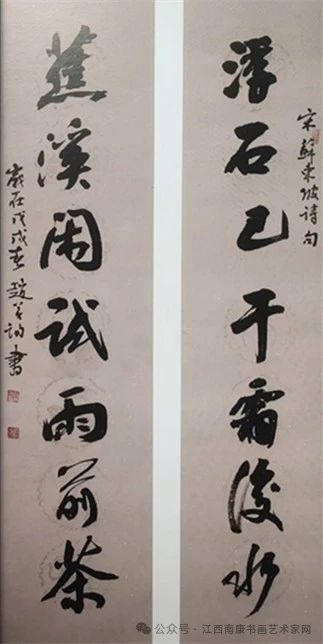 宋蘇東坡诗句
浮石已干霜後水
蕉溪闲试雨前茶
歲在戊戌春趙书
公众号 · 江西南康书画艺术家网